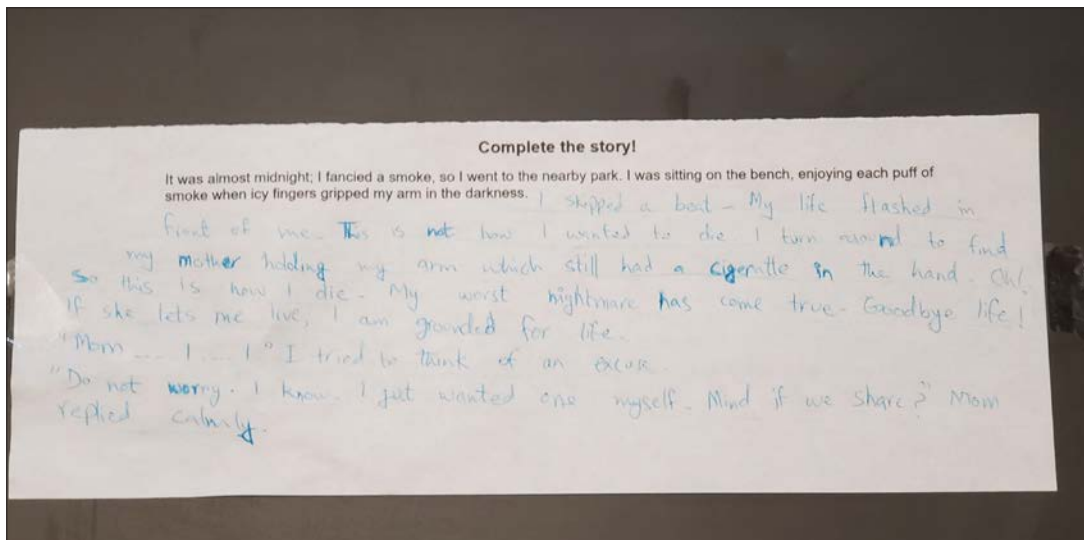 Complete the story!
It was almost midnight; I fancied a smoke, so I went to the nearby park. I was sitting on the bench, enjoying each puff of
smoke when icy fingers gripped my arm in the darkness. I skipped a beat - My life flashed in
front of me. This is not how I wanted to die I turn around to find
my mother holding my arm which still had a cigerattle in the hand. Oh!
So this is how I die. My worst nightmare has come true. Goodbye life!
If she lets me live, I am grounded for life.
"Mom ... I ... I" I tried to think of an excuse.
"Do not worry. I know. I just wanted one myself. Mind if we share?" Mom
replied calmly.